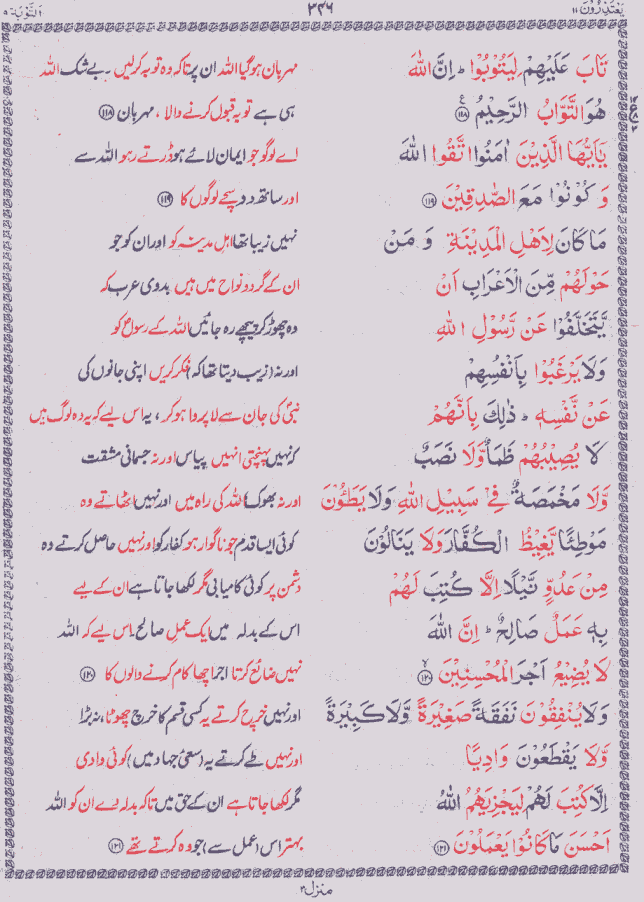 یعتذرون ۱۱ ۳۴۶ التوبة ۹
تَابَ عَلَيْهِمْ لِيَتُوْبُوْا ؕ اِنَّ اللّٰهَ مہربان ہوگیا اللہ ان پر تاکہ وہ توبہ کرلیں ۔ بے شک اللہ
هُوَ التَّوَّابُ الرَّحِيْمُ ﴿۱۱۸﴾ ہی ہے توبہ قبول کرنے والا ، مہربان ﴿۱۱۸﴾
يٰۤاَيُّهَا الَّذِيْنَ اٰمَنُوا اتَّقُوا اللّٰهَ اے لوگو جو ایمان لائے ہو ڈرتے رہو اللہ سے
وَ كُوْنُوْا مَعَ الصّٰدِقِيْنَ ﴿۱۱۹﴾ اور ساتھ دو سچے لوگوں کا ﴿۱۱۹﴾
مَا كَانَ لِاَهْلِ الْمَدِيْنَةِ وَ مَنْ نہیں زیبا تھا اہل مدینہ کو اور ان کو جو
حَوْلَهُمْ مِّنَ الْاَعْرَابِ اَنْ ان کے گردونواح میں ہیں بدوی عرب کہ
يَّتَخَلَّفُوْا عَنْ رَّسُوْلِ اللّٰهِ وہ چھوڑ کر پیچھے رہ جائیں اللہ کے رسولؐ کو
وَلَا يَرْغَبُوْا بِاَنْفُسِهِمْ اور نہ (زیب دیتا تھا کہ) فکر کریں اپنی جانوں کی
عَنْ نَّفْسِهٖ ؕ ذٰلِكَ بِاَنَّهُمْ نبیؐ کی جان سے لاپروا ہو کر ، یہ اس لیے کہ یہ وہ لوگ ہیں
لَا يُصِيْبُهُمْ ظَمَاٌ وَّلَا نَصَبٌ کہ نہیں پہنچتی انہیں پیاس اور نہ جسمانی مشقت
وَّلَا مَخْمَصَةٌ فِيْ سَبِيْلِ اللّٰهِ وَلَا يَطَئُوْنَ اور نہ بھوک اللہ کی راہ میں اور نہیں اٹھاتے وہ
مَوْطِئًا يَّغِيْظُ الْكُفَّارَ وَلَا يَنَالُوْنَ کوئی ایسا قدم جو ناگوار ہو کفار کو اور نہیں حاصل کرتے وہ
مِنْ عَدُوٍّ نَّيْلًا اِلَّا كُتِبَ لَهُمْ دشمن پر کوئی کامیابی مگر لکھا جاتا ہے ان کے لیے
بِهٖ عَمَلٌ صَالِحٌ ؕ اِنَّ اللّٰهَ اس کے بدلہ میں ایک عمل صالح۔ اس لیے کہ اللہ
لَا يُضِيْعُ اَجْرَ الْمُحْسِنِيْنَ ﴿۱۲۰﴾ نہیں ضائع کرتا اجر اچھا کام کرنے والوں کا ﴿۱۲۰﴾
وَلَا يُنْفِقُوْنَ نَفَقَةً صَغِيْرَةً وَّلَا كَبِيْرَةً اور نہیں خرچ کرتے یہ کسی قسم کا خرچ چھوٹا ، نہ بڑا
وَّلَا يَقْطَعُوْنَ وَادِيًا اور نہیں طے کرتے یہ (سعئ جہاد میں) کوئی وادی
اِلَّا كُتِبَ لَهُمْ لِيَجْزِيَهُمُ اللّٰهُ مگر لکھا جاتا ہے ان کے حق میں تاکہ بدلہ دے ان کو اللہ
اَحْسَنَ مَا كَانُوْا يَعْمَلُوْنَ ﴿۱۲۱﴾ بہتر اس (عمل سے) جو وہ کرتے تھے ﴿۱۲۱﴾
منزل ۲